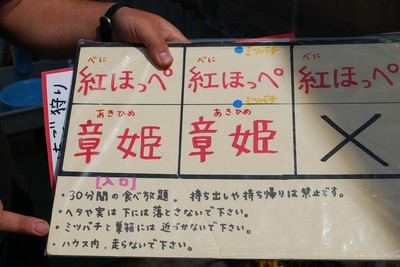 べに べに べに
紅ほっぺ 紅ほっぺ 紅ほっぺ
ミツバチ
ミツバチ
あきひめ あきひめ
章姫 章姫 ×
[入口]
・30分間の食べ放題。 持ち出しや持ち帰りは禁止です。
・ヘタや実は下には落とさないで下さい。
・ミツバチと巣箱には近づかないで下さい。
・ハウス内、走らないで下さい。
ちご狩り